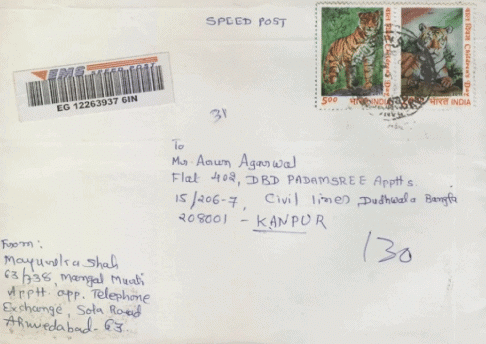 SPEED POST
EMS SPEED POST
EG 12263937 6IN
बाल दिवस Children's Day
5.00 भारत INDIA
बाल दिवस Children's Day
भारत INDIA
31
To
Mr. Arun Agarwal
Flat 402, DBD PADAMSREE Appts.
15/206-7, Civil lines, Dudhwala Bangla
208001 - KANPUR
130
From:
Mayundra Shah
63/738, Mangal Murti
Appt app. Telephone
Exchange, Sola Road
Ahmedabad-63.